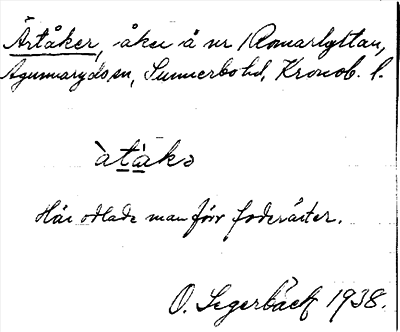 Ärtåker, åker å nr 1 Romarlyttan,
Agunnaryds sn, Sunnerbo hd, Kronob. l.
àtàkə
Här odlade man förr foderärter.
O. Segerbäck 1938.